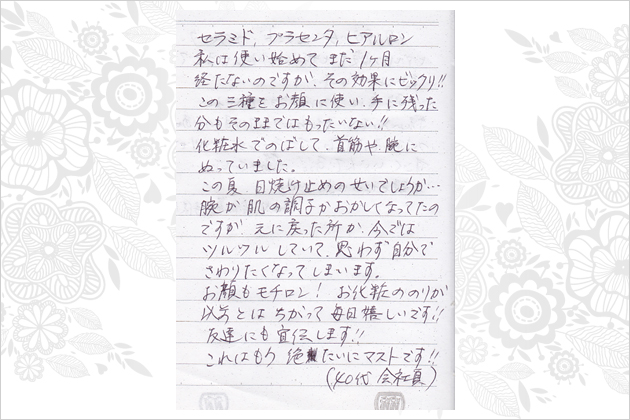 セラミド, プラセンタ, ヒアルロン
私は使い始めて まだ1ヶ月
経たないのですが、その効果にビックリ!!
この三種を お顔に使い、手に残った
分もそのままではもったいない!!
化粧水でのばして、首筋や、腕に
ぬっていました。
この夏、日焼け止めのせいでしょうか…
腕が肌の調子がおかしくなってたの
ですが 元に戻った所か、今では
ツルツルしていて、思わず自分で
さわりたくなってしまいます。
お顔もモチロン! お化粧ののりが
以前とは ちがって 毎日嬉しいです!!
友達にも宣伝します!!
これはもう 絶たいにマストです!!
(40代 会社員)